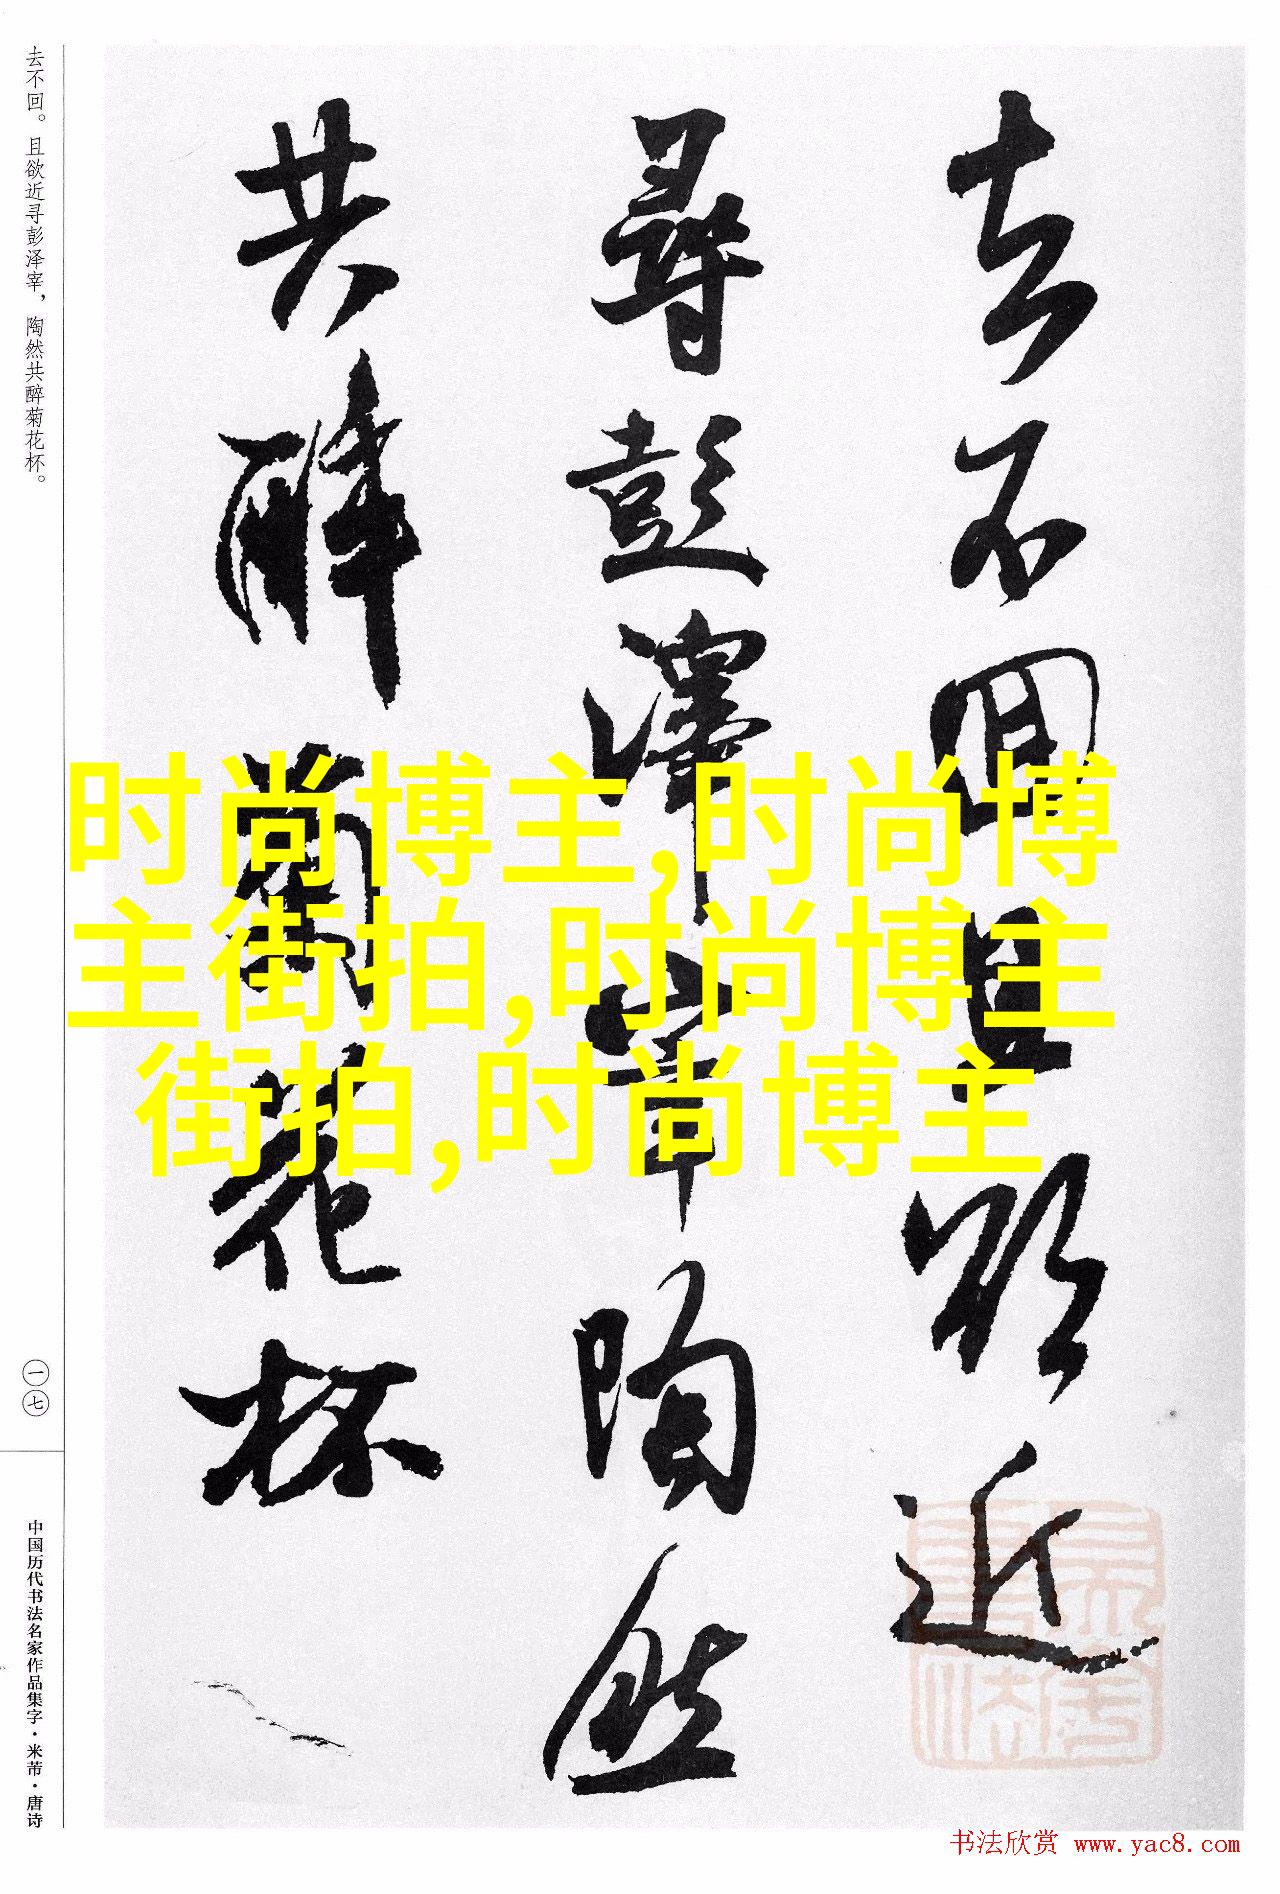 去不回且欲近
尋彭澤宰陶然
共醉菊花杯
去不回。且欲近寻彭泽宰，陶然共醉菊花杯。
一七
中国历代书法名家作品集字·米芾·唐诗
时尚博主,时尚博
主街拍,时尚博主
街拍,时尚博主
书法欣赏 www.yac8.com